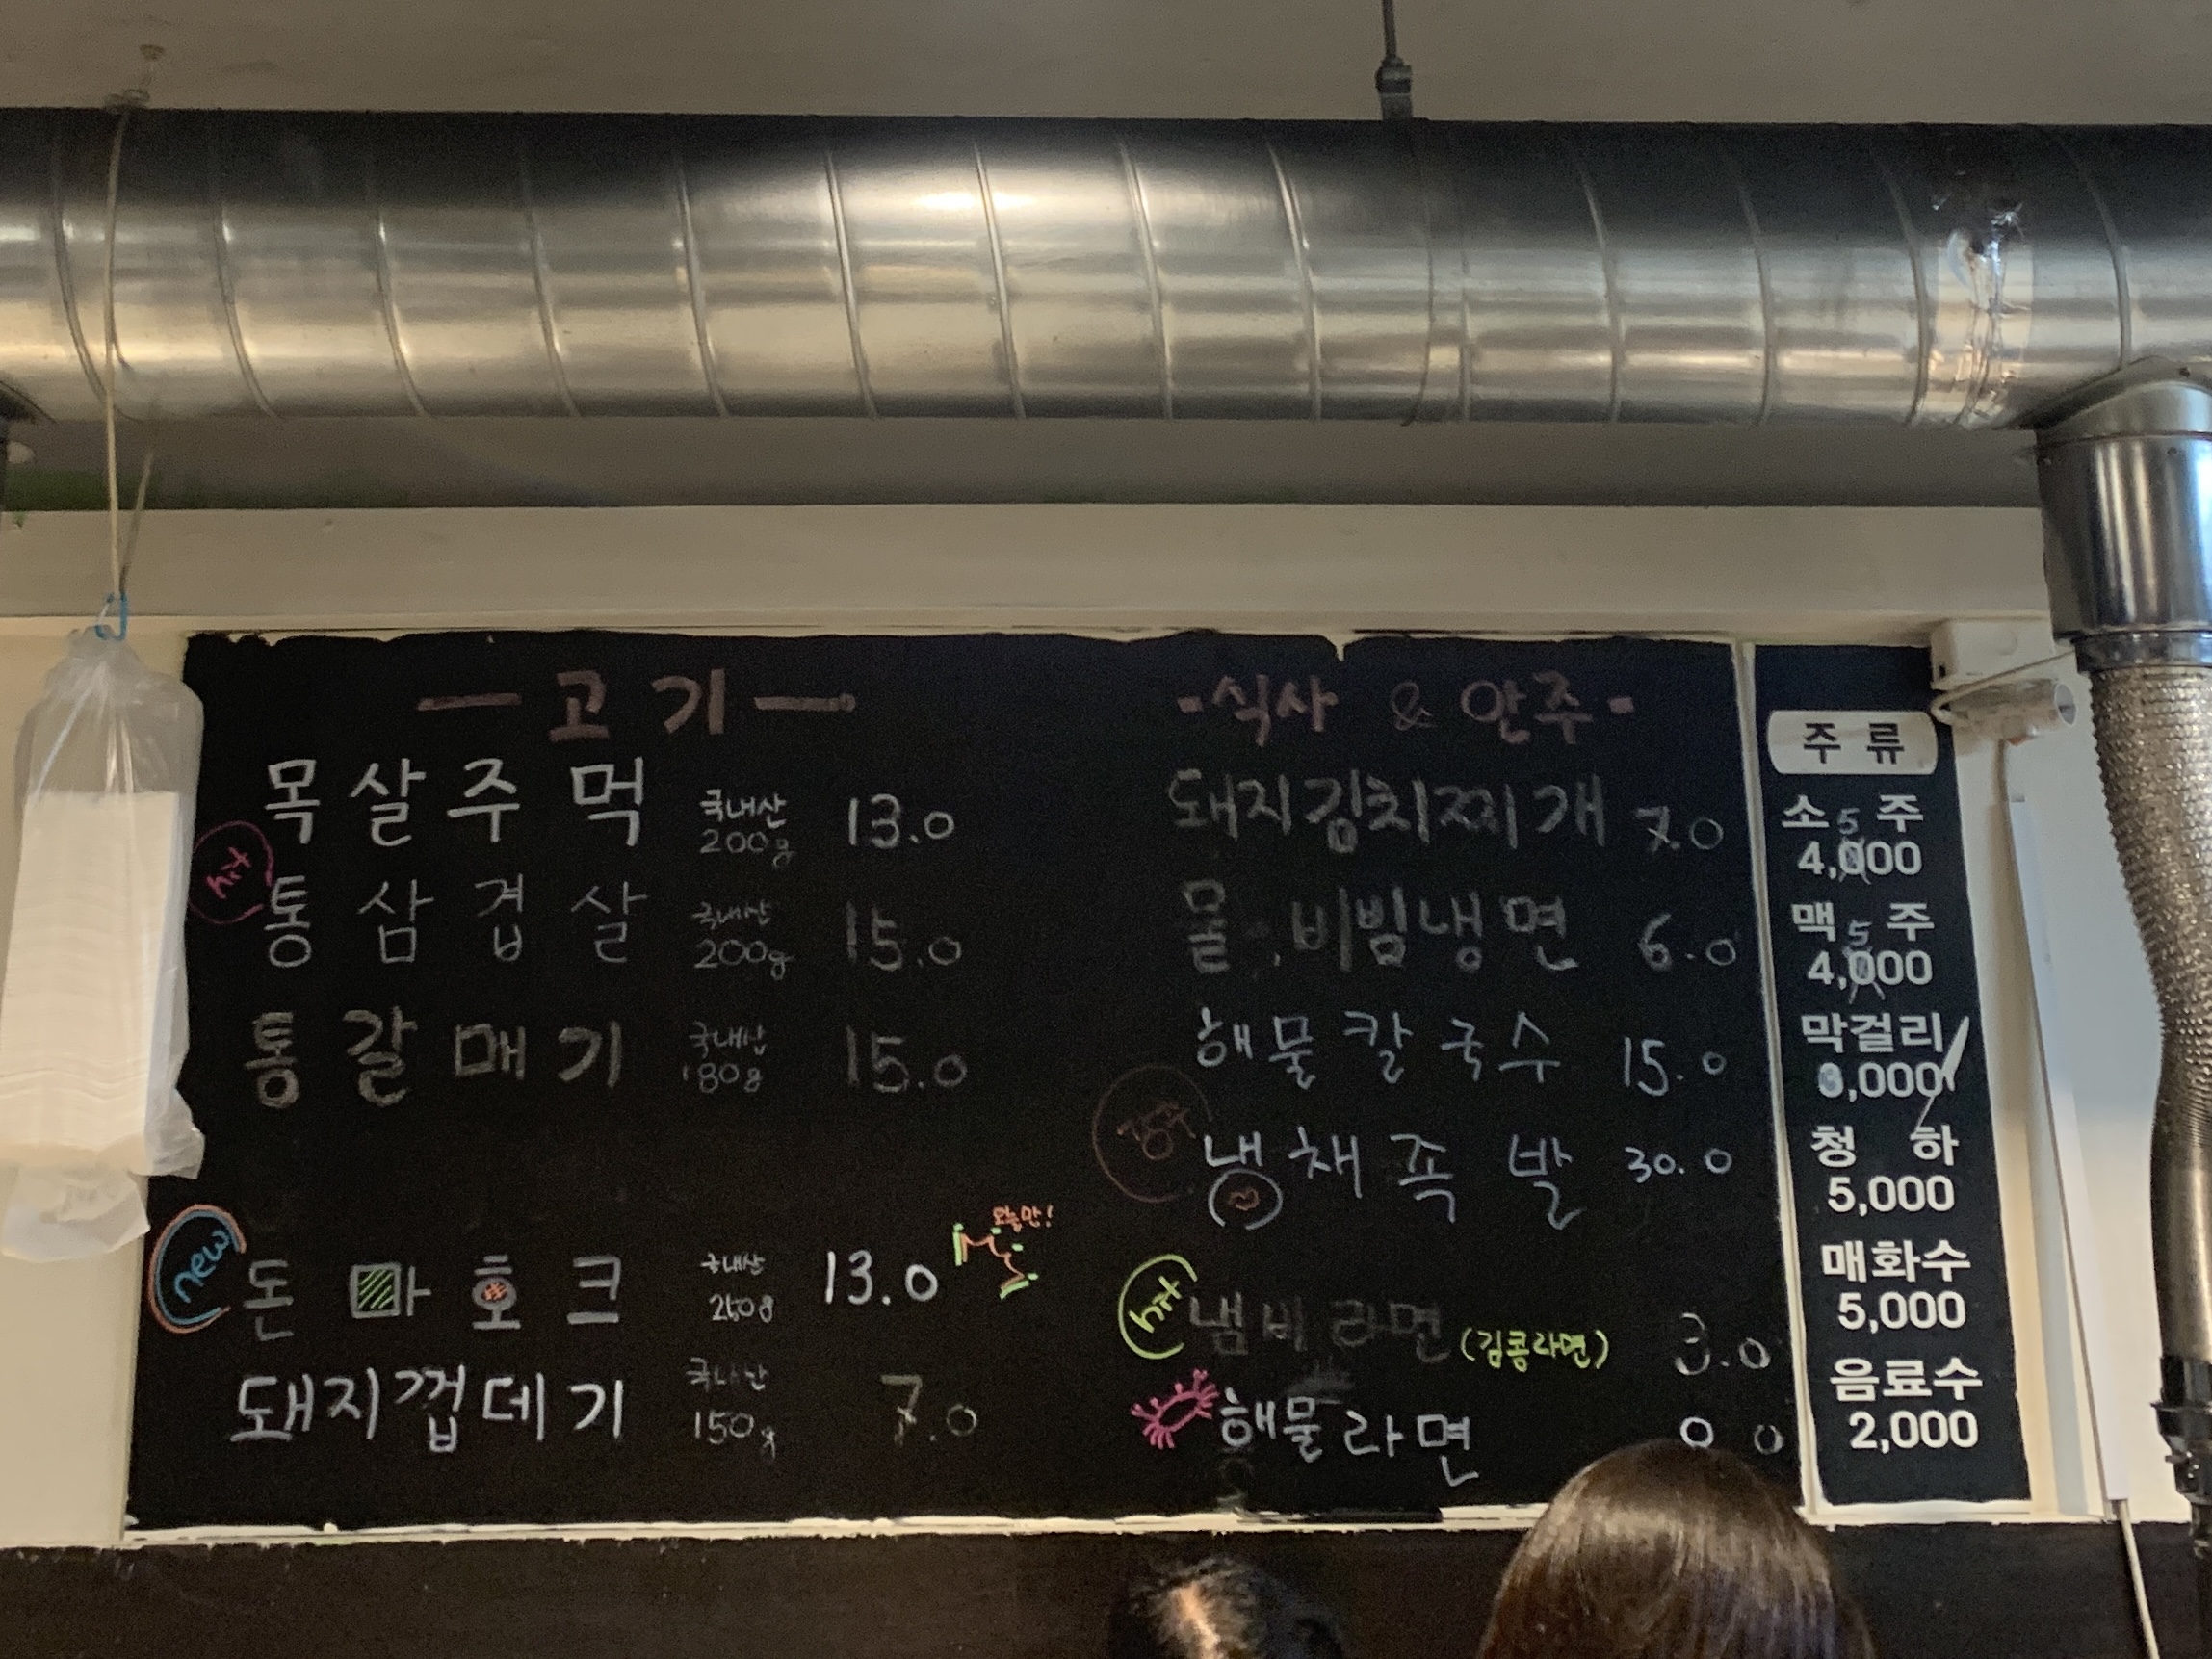 고기
목살주먹 국내산 200g 13.0
hit
통삼겹살 국내산 200g 15.0
통갈매기 국내산 180g 15.0
new
돈마호크 국내산 13.0
오늘만!
돼지껍데기 국내산 150g 7.0
-식사 & 안주-
돼지김치찌개 7.0
물.비빔냉면 6.0
해물칼국수 15.0
냉채족발 30.0
hit
냄비라면 (김콩라면) 3.0
해물라면
주류
소주
5
4,000
맥주
5
4,000
막걸리
3,000
청하
5,000
매화수
5,000
음료수
2,000